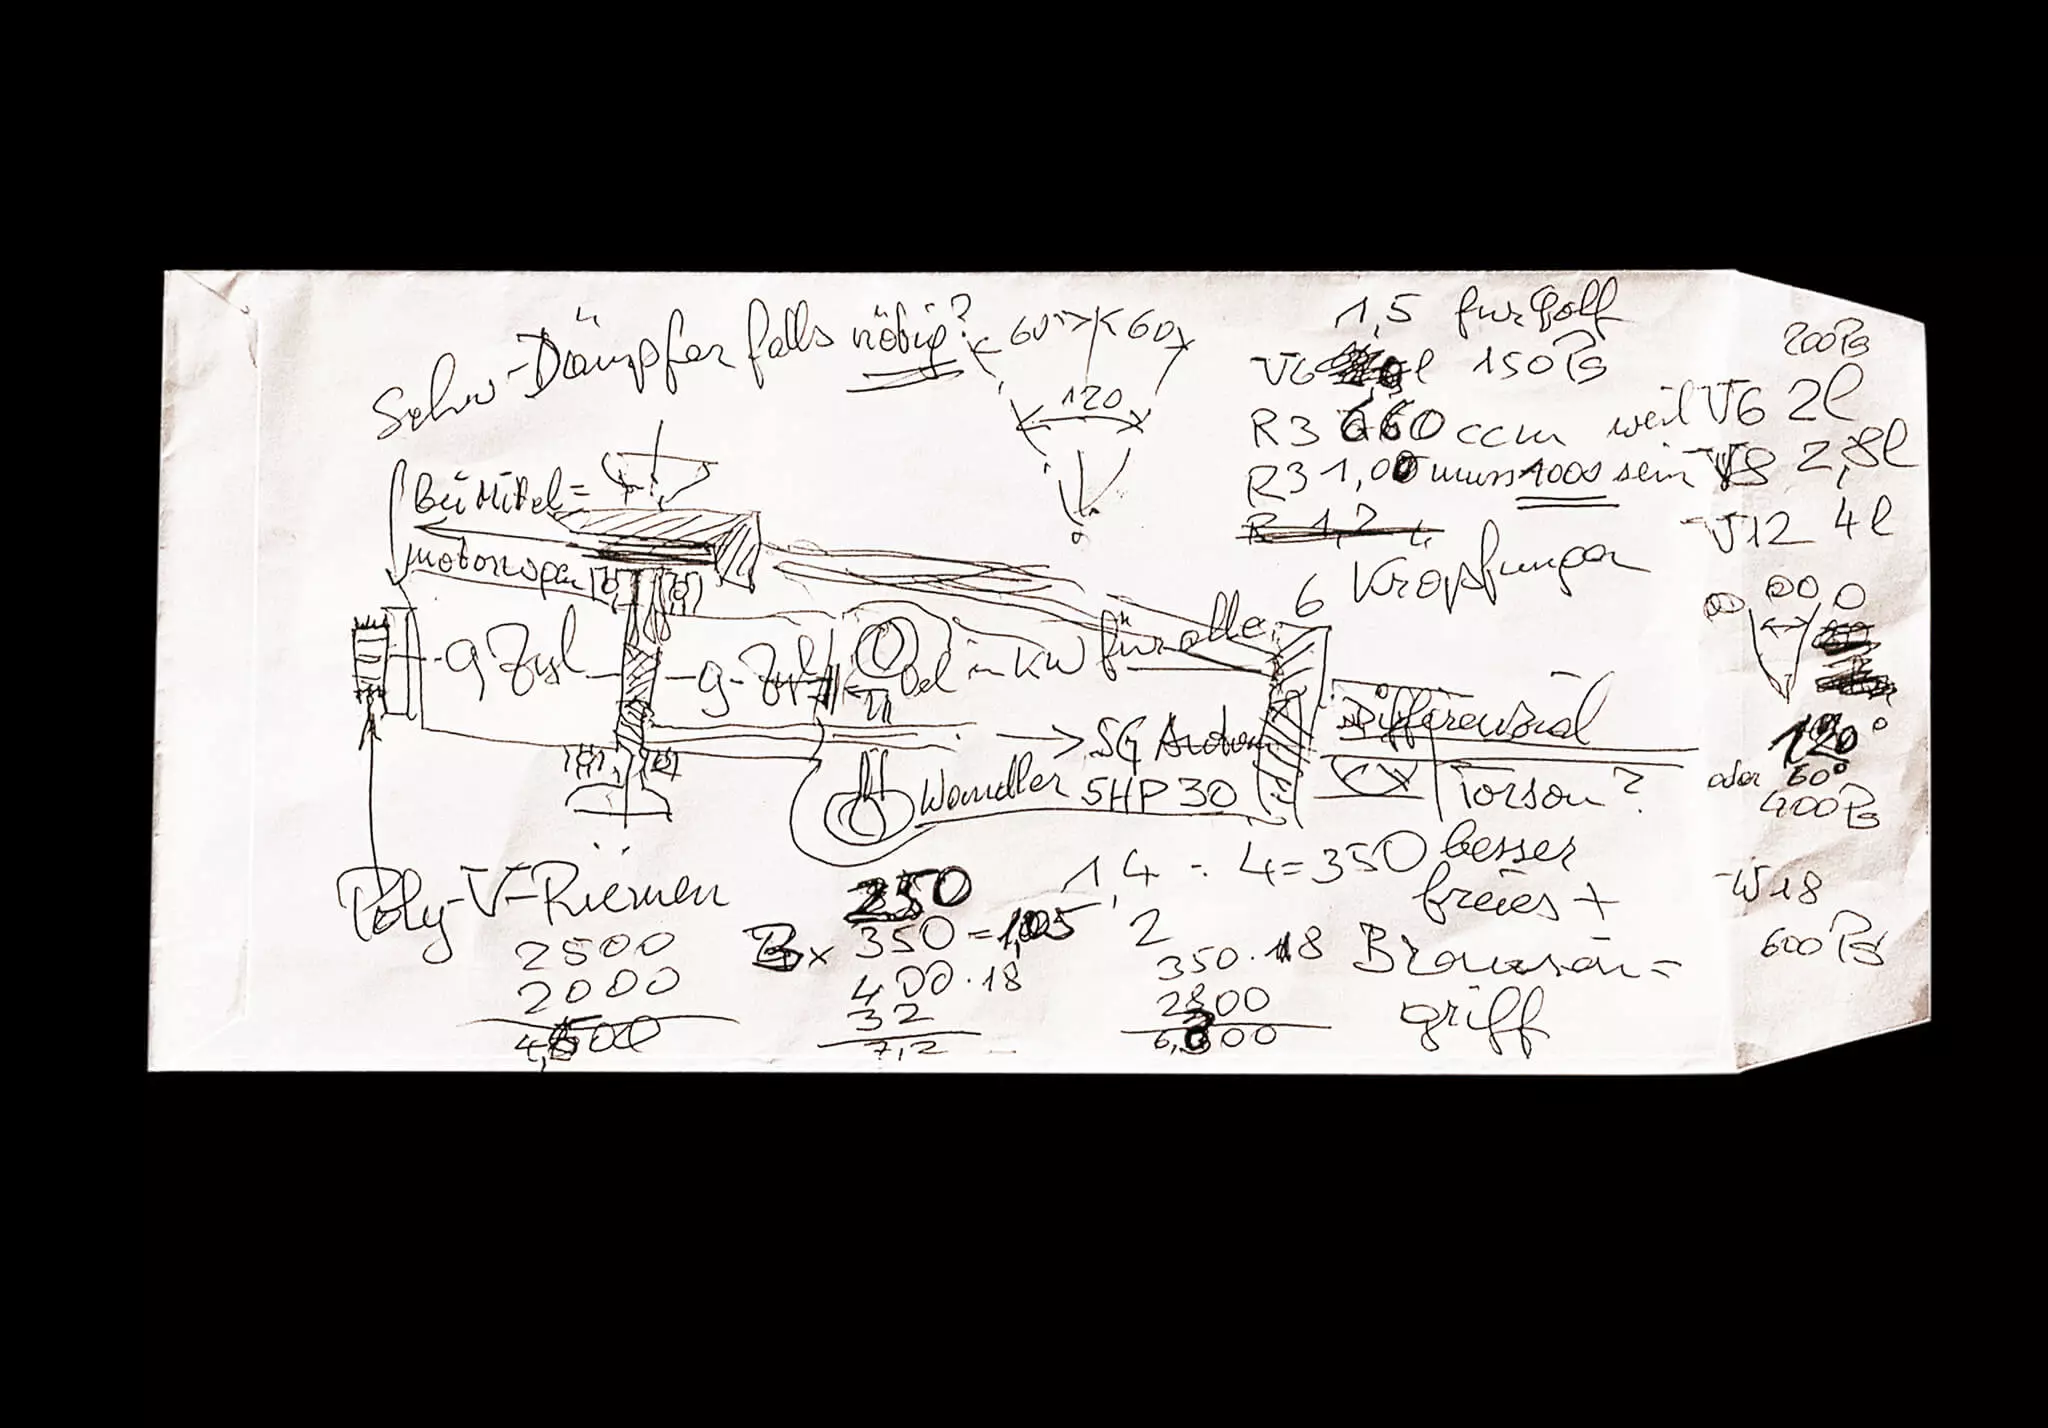 Schw-Dämpfer falls nötig?
60° 60
120
1,5 für Golf
V6 l 150 PS
R3 660 ccm weil V6 2l
R3 1,00 muss 1000 sein V8 2,8l
R 1,2
V12 4l
200 PS
6 Kröpfungen
Bei Mittel=
motorwagen
9 Zyl
9-Zyl
Öl in KW für alle
→ SG Autom
Wandler 5HP30
Differenzial
Torson?
120°
oder 60°
400 PS
Poly-V-Riemen
2500
2000
4,500
250
3x 350 = 1,05
400·18
32
7,2
1,4 : 4 = 350
2
350·18
2800
6,300
besser
freies +
griff
W18
600 PS